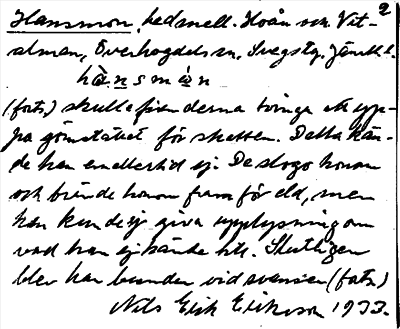 2
Hansmon, bed snell. Hoån och Vit-
alman, Överhogdals sn, Svegs tg. Jämtl. l.
hànsmòn
(forts.) skulle fienderna tvinga att upp-
ge gömstället för skatten. Detta kän-
de han emellertid ej. De slogo honom
och brände honom fram för eld, men
han kunde ej giva upplysning om
vad han ej kände till. Slutligen
blev han bunden vid svansen (forts.)
Nils Erik Eriksson 1933.